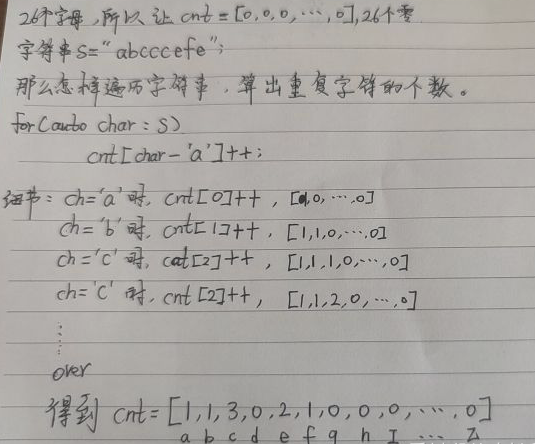 26个字母,所以让 cnt = [0,0,0,…,0],26个零
字符串S="abcccefe";
那么怎样遍历字符串,算出重复字符的个数。
for(auto char : S)
cnt[char-'a']++;
细节: ch='a'时, cnt[0]++, [1,0,…,0]
ch='b'时, cnt[1]++, [1,1,0,…,0]
ch='c'时, cnt[2]++, [1,1,1,0,…,0]
ch='c'时, cnt[2]++, [1,1,2,0,…,0]
⋮
over
得到 cnt=[1,1,3,0,2,1,0,0,0,…,0]
a b c d e f g h I … Z